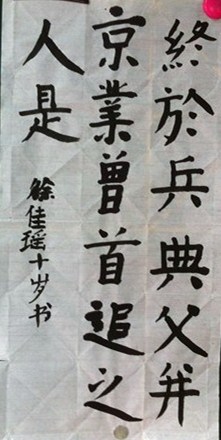 終於兵典父并
京業曾首追之
人是
徐佳瑶十岁书